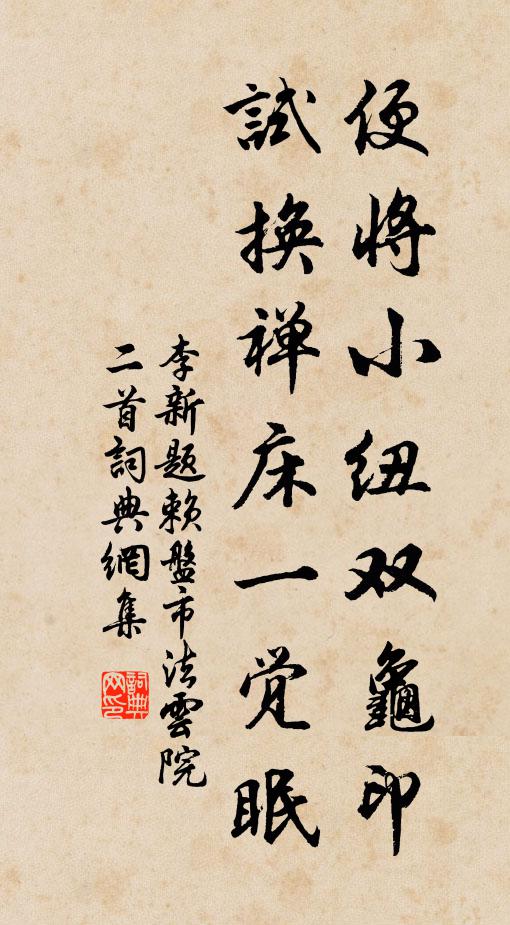 便將小纽双龜印
試換禅床一觉眠
李新题赖盤市法雲院
二首詞典網集
詞典网印